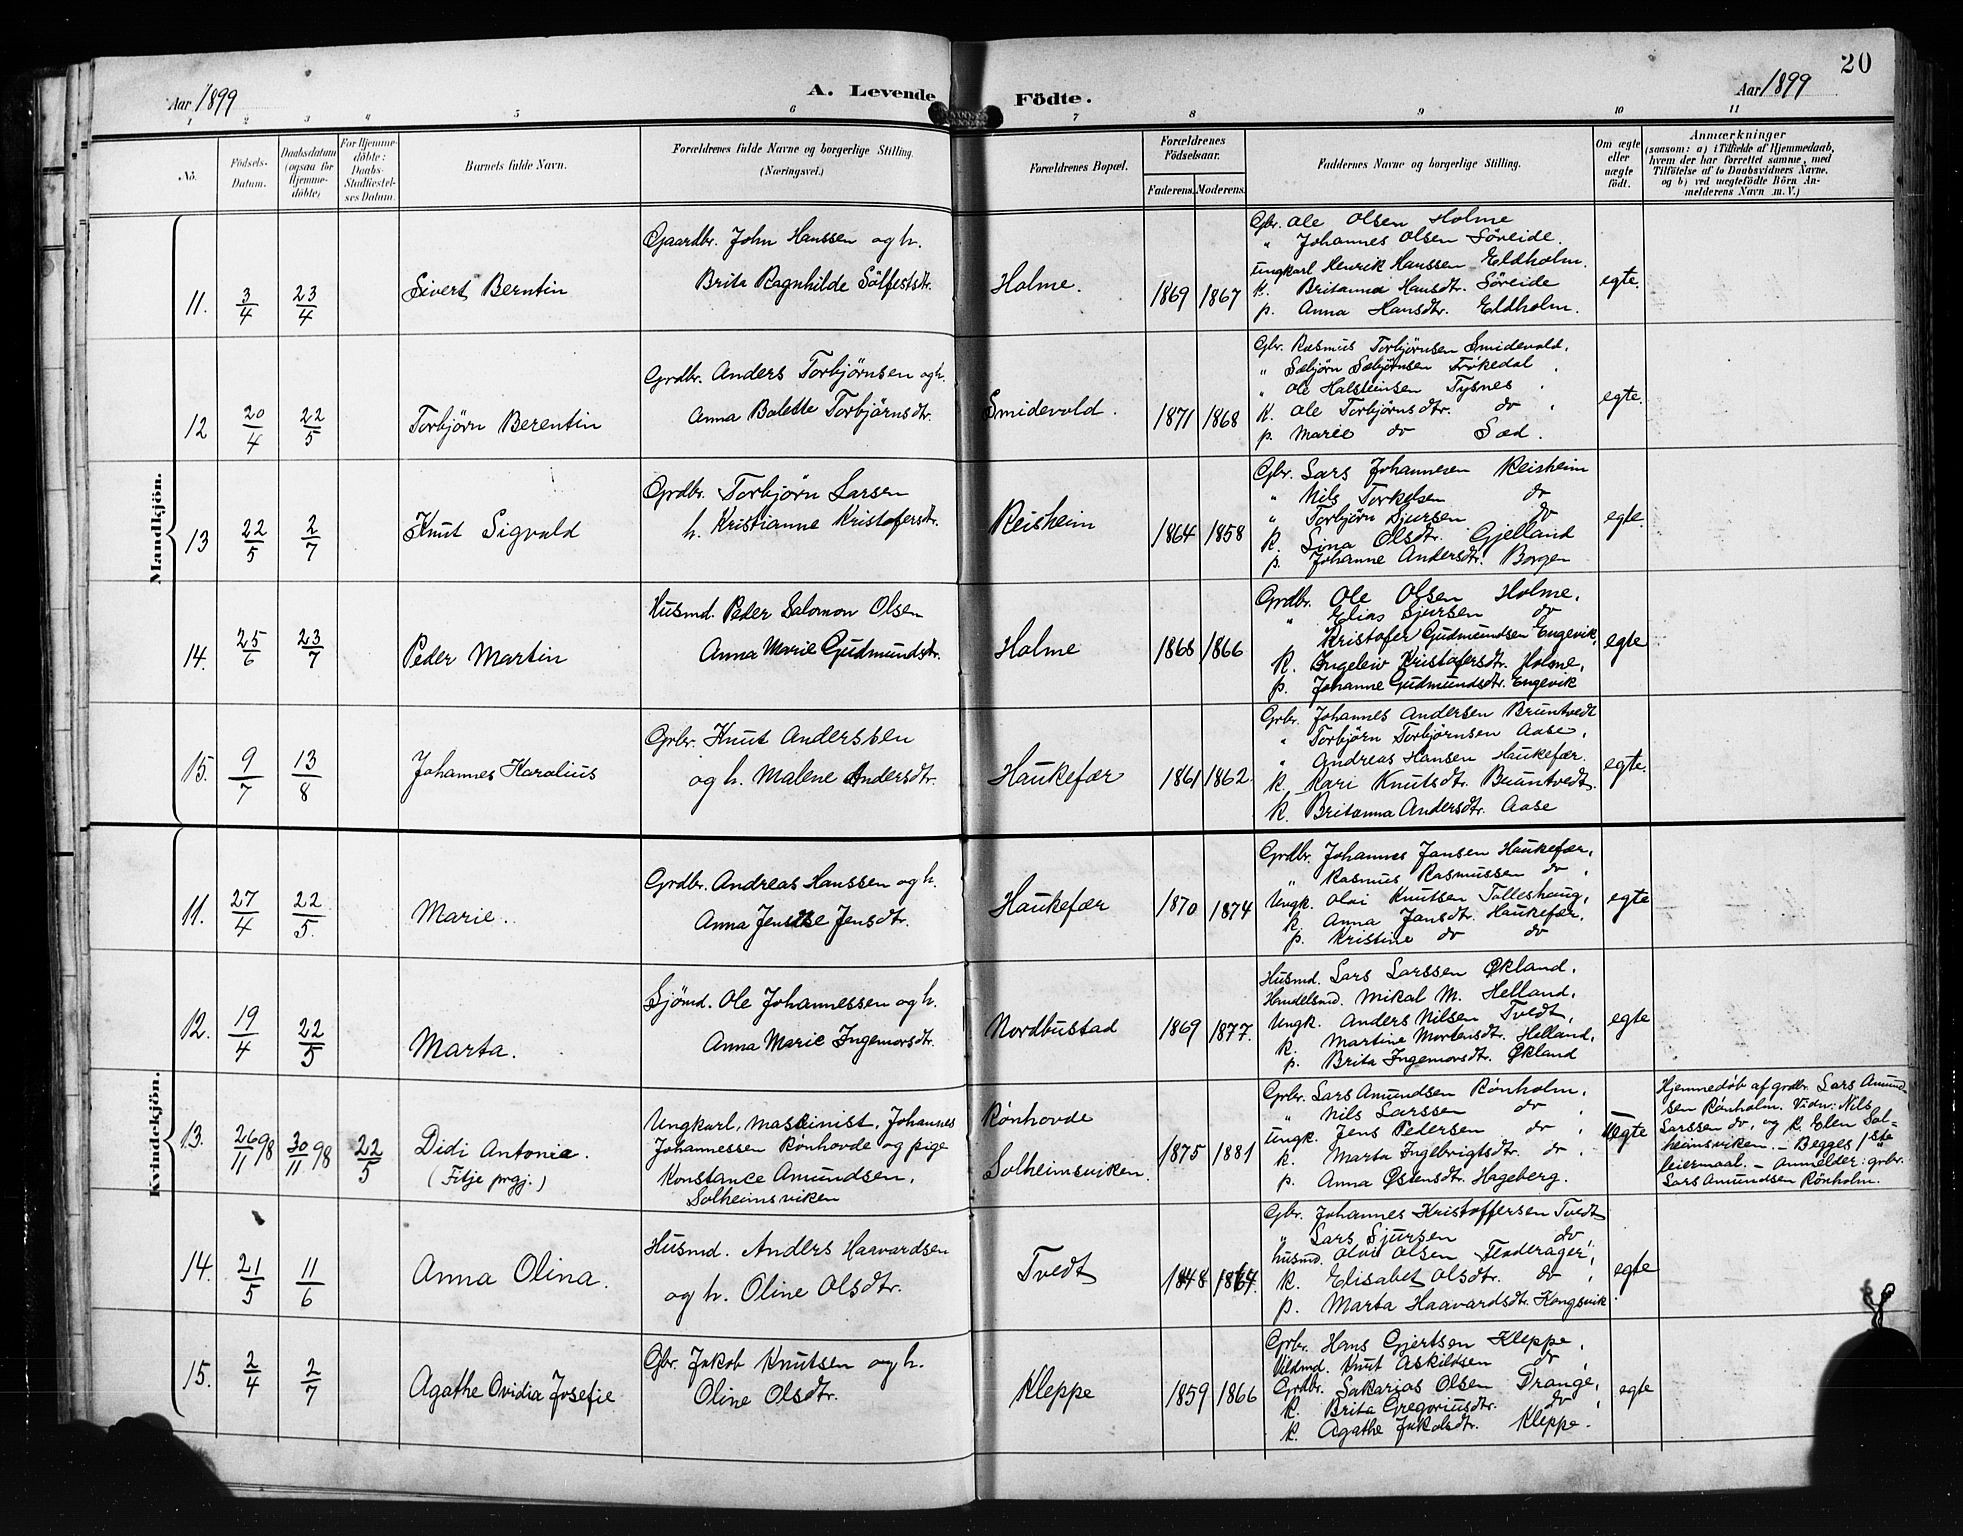 20
Aar 1899
A. Levende Födte.
Aar 1899
1 2 3 4 5 6 7 8 9 10 11
No.
Födsels-Datum.
Daabsdatum (ogsaa for Hjemmedöbte)
For Hjemmedöbte: Daabs-Stadfæstelses Datum.
Barnets fulde Navn.
Forældrenes fulde Navne og borgerlige Stilling. (Næringsvei.)
Forældrenes Bopæl.
Forældrenes Födselsaar.
Faderens. Moderens.
Faddernes Navne og borgerlige Stilling.
Om ægte eller uægte födt.
Anmærkninger
(saasom: a) i Tilfælde af Hjemmedaab,
hvem der har forrettet samme, med
Tilföielse af to Daabsvidners Navne,
og b) ved uægtefödte Börn An-
melderens Navn m. V.)
Mandkjön.
11. 3/4 23/4 Sivert Berntin
Gaardbr. John Hanssen og h.
Brita Ragnhilde Sölfestsdtr.
Holme. 1869 1867
Gbr. Ole Olsen Holme
" Johannes Olsen Söreide.
Ungkarl Henrik Hanssen Eldholm.
k. Britanna Hansdtr. Söreide
p. Anna Hansdtr. Eldholm.
egte.
12 20/4 22/5 Torbjörn Berentin
Grdbr. Anders Torbjörnsen og h.
Anna Bolette Torbjörnsdtr.
Smidevold. 1871 1868
Gbr. Rasmus Torbjörnsen Smidevold,
" Sæbjörn Sæbjörnsen Frökedal
" Ole Halsteinsen Tysnes
k. Ole Torbjörnsdtr. do
p. Marie do Sæd.
egte.
13 22/5 2/7 Knut Sigvald
Grdbr. Torbjörn Larsen
h. Kristianne Kristofersdtr.
Reisheim 1864 1858
Gbr. Lars Johannesen Reisheim
" Nils Torkelsen do
" Torbjörn Sjursen do
k. Sina Olsdtr. Gjelland
p. Johanne Andersdtr. Borgen
egte.
14. 25/6 23/7 Peder Martin
Husmd. Peder Salomon Olsen
Anna Marie Gudmundsdtr.
Holme 1868 1866
Grdbr. Ole Olsen Holme,
" Elias Sjursen do
" Kristofer Gudmundsen Engevik
k. Ingeleiv Kristofersdtr. Holme,
p. Johanne Gudmundsdtr. Engevik
egte
15. 9/7 13/8 Johannes Karolius
Grbr. Knut Anderssen
og h. Malene Andersdtr.
Haukefær 1861 1862.
Grbr. Johannes Andersen Bruntvedt
" Torbjörn Torbjörnsen Aase,
" Andreas Hansen Haukefær.
k. Kari Knutsdtr. Bruntvedt.
k. Britanna Andersdtr. Aase
egte.
Kvindekjön.
11. 27/4 22/5 Marie.
Grdbr. Andreas Hanssen og h.
Anna Jensine Jensdtr.
Haukefær 1870 1874
Grdbr. Johannes Jansen Haukefær,
" Rasmus Rasmussen do,
Ungk. Olai Knutsen Tolleshaug,
k. Anna Jansdtr. Haukefær,
p. Kristine do do
egte
12. 19/4 22/5 Marta.
Sjömd. Ole Johannessen og h.
Anna Marie Ingemorsdtr.
Nordbustad 1869 1877.
Husmd. Lars Larssen Økland,
Handelsmd. Mikal M. Helland,
Ungk. Anders Nilsen Tvedt,
k. Martine Mortensdtr. Helland,
p. Brita Ingemorsdtr. Økland
egte
13. 26/11 98 30/11 98 22/5 Didi Antonie.
(Fitje prgj.)
Ungkarl, maskinist, Johannes
Johannessen Rönhovde og pige
Konstance Amundsen,
Solheimsviken
Rönhovde
Solheimsviken. 1875 1881
Grbr. Lars Amundsen Rönholm,
" Nils Larssen do,
Ungk. Jens Pedersen do,
k. Marta Ingebrigtsdtr. do.
p. Anna Østensdtr. Hageberg.
Uegte
Hjemmedöb af grdbr. Lars Amund-
sen Rönholm. Vidn: Nils
Larssen do, og k. Elen Sol-
heimsviken. – Begges 1ste
leiermaal. – Anmelder: grbr.
Lars Amundsen Rönholm.
14. 21/5 11/6 Anna Olina.
Husmd. Anders Harvardsen
og h. Oline Olsdtr.
Tvedt 1848 1864.
Gbr. Johannes Kristoffersen Tvedt
" Lars Sjursen do,
husmd. Olai Olsen Flaterager,
k. Elisabet Olsdtr. do,
p. Marta Haavardsdtr. Kongsvik.
egte
15. 2/4 2/7 Agathe Ovidia Josefie
Gbr. Jakob Knutsen og h.
Oline Olsdtr.
Kleppe 1859 1866
Grbr. Hans Gjertsen Kleppe,
Knut Askildsen do,
Grdbr. Sakarias Olsen Drange,
k. Brita Gregoriusdtr. do,
k. Agathe Jakobsdtr. Kleppe.
egte